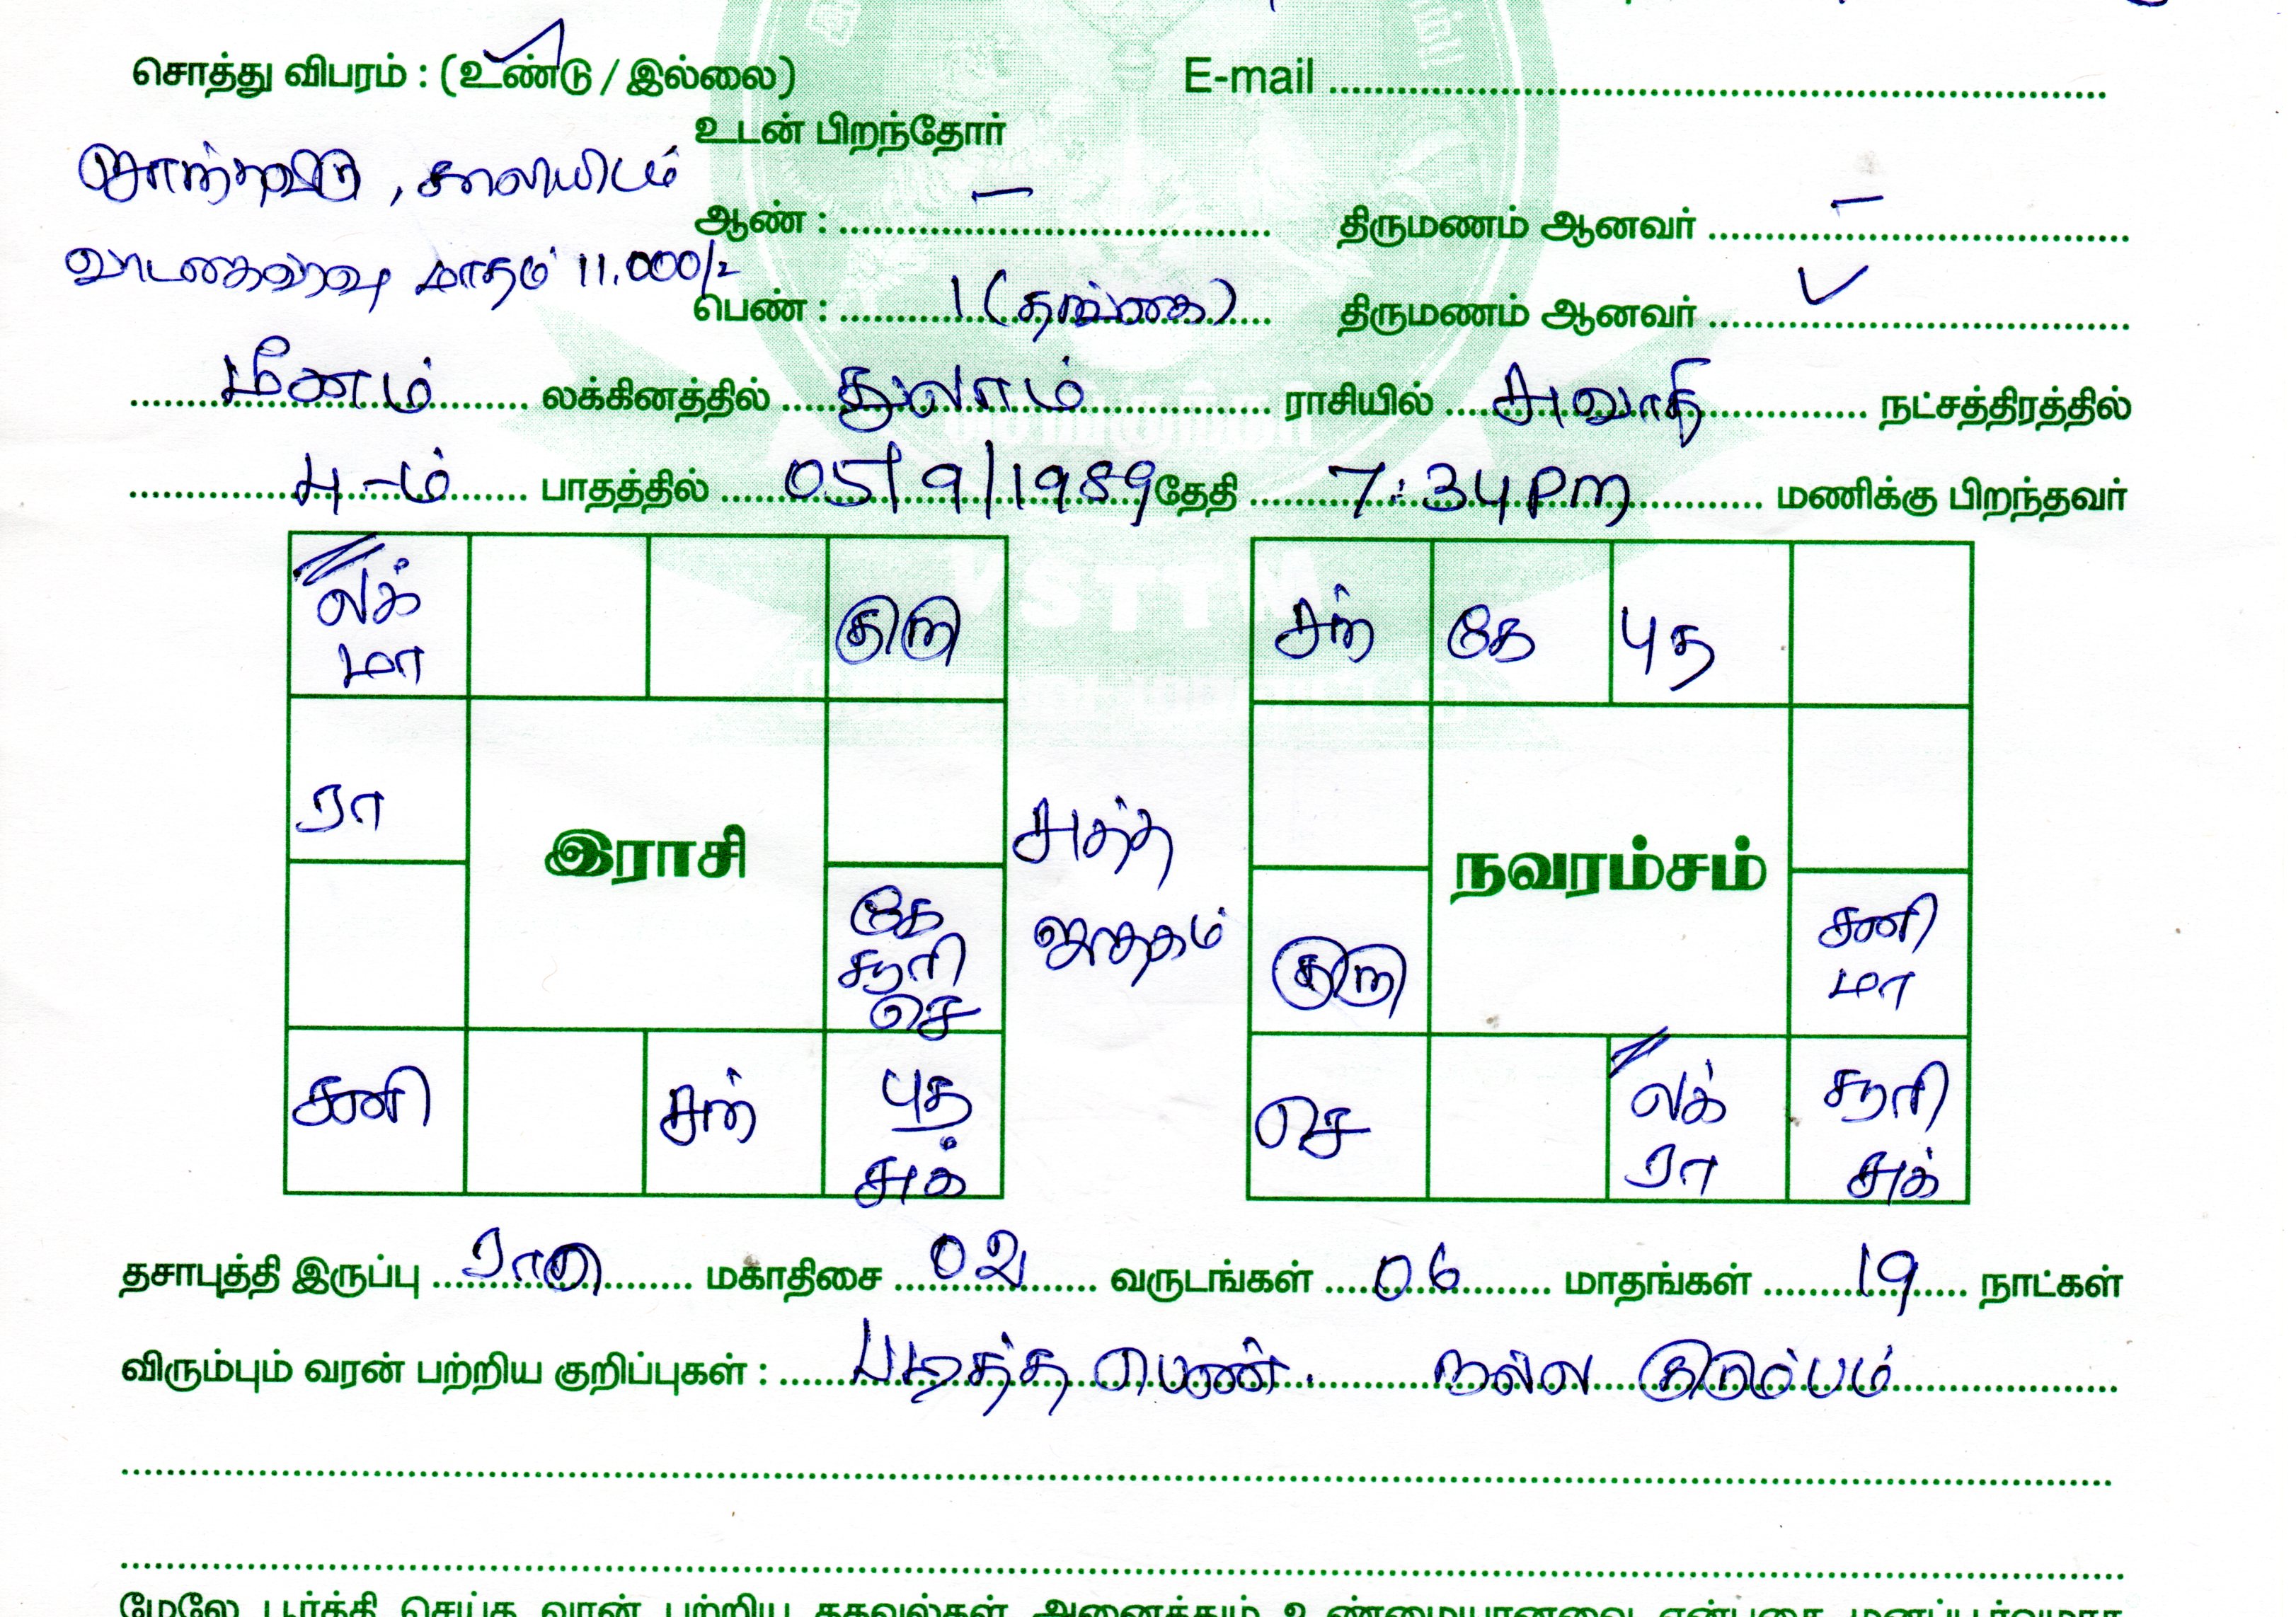 சொத்து விபரம் : (உண்டு / இல்லை) E-mail
உடன் பிறந்தோர்
சொந்தவீடு , காலியிடம்
ஆண் : – திருமணம் ஆனவர் –
வாடகைவரவு மாதம் 11.000/-
பெண் : 1 (தங்கை) திருமணம் ஆனவர் ✓
மீனம் லக்கினத்தில் துலாம் ராசியில் சுவாதி நட்சத்திரத்தில்
4-ம் பாதத்தில் 05/9/1989 தேதி 7:34 Pm மணிக்கு பிறந்தவர்
லக் மா
குரு
ரா
இராசி
கே சூரி செ
சனி
சந்
புத சுக்
சுத்த ஜாதகம்
சந்
கே
புத
நவரம்சம்
குரு
சனி மா
செ
லக் ரா
சூரி சுக்
VSTTM
தசாபுத்தி இருப்பு ராகு மகாதிசை 02 வருடங்கள் 06 மாதங்கள் 19 நாட்கள்
விரும்பும் வரன் பற்றிய குறிப்புகள் : படித்த பெண். நல்ல குடும்பம்
மேலே பூர்த்தி செய்த வரன் பற்றிய தகவல்கள் அனைத்தும் உண்மையானவை என்பதை மனப்பூர்வமாக